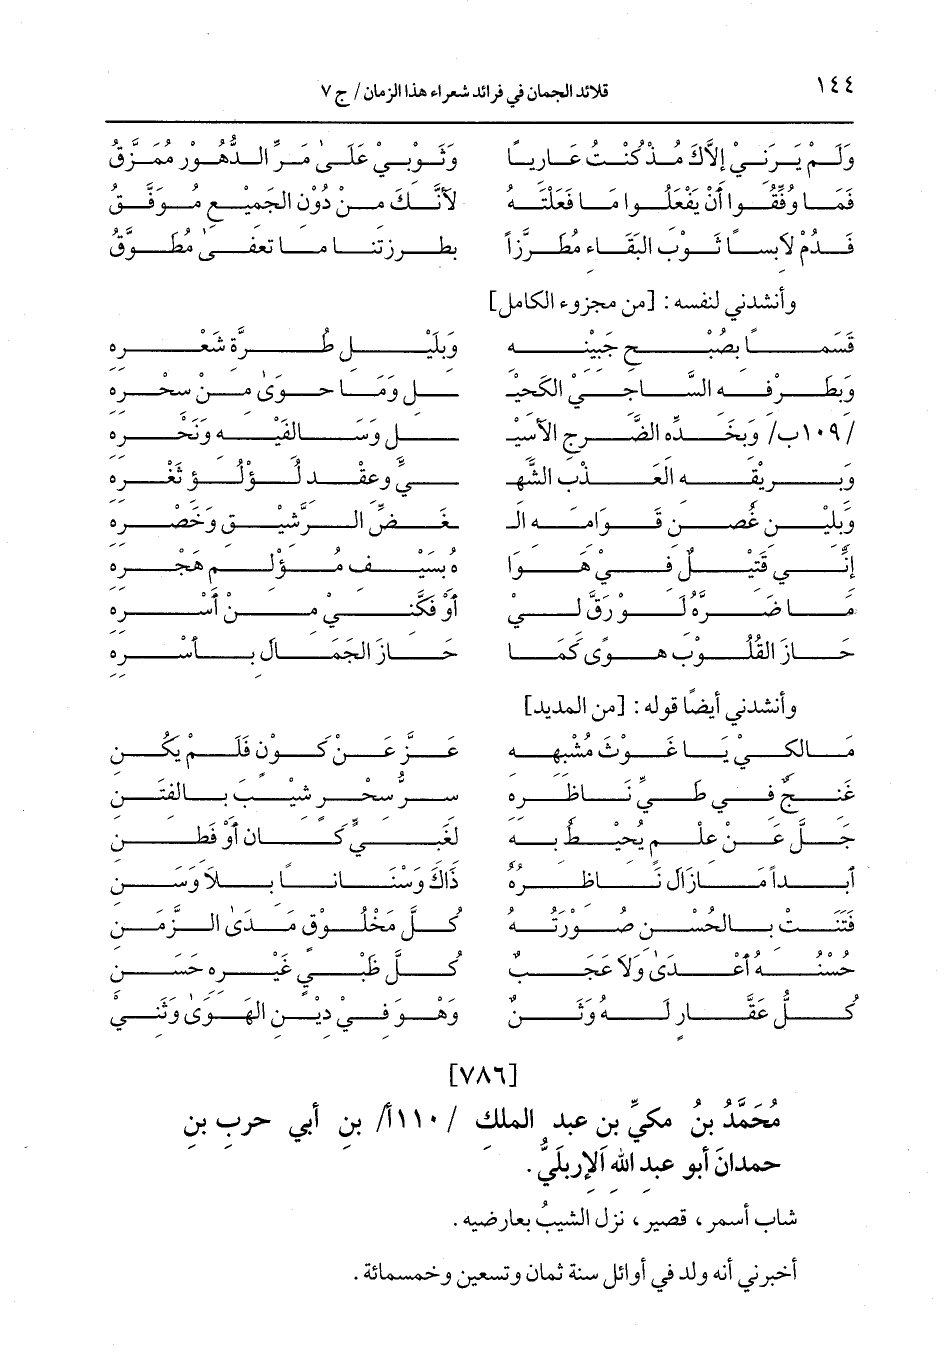 ١٤٤ قلائد الجمان في فرائد شعراء هذا الزمان/ ج ٧
وَلَمْ يَرَنِيْ إلاَّكَ مُذْ كُنْتُ عَارِيًا وَثَوْبِيْ عَلَىٰ مَرِّ الدُّهُوْرِ مُمَزَّقُ
فَمَا وُفِّقُوا أَنْ يَفْعَلُوا مَا فَعَلْتَهُ لأَنَّكَ مِنْ دُوْنِ الجَمِيْعِ مُوَفَّقُ
فَدُمْ لاَبِسًا ثَوْبَ البَقَاءِ مُطَرَّزاً بطرزتنا ما تعفىٰ مُطَوَّقُ
وأنشدني لنفسه: [من مجزوء الكامل]
قَسَمًا بِصُبْحِ جَبِيْنِهِ وَبَلَيْلِ طُرَّةِ شَعْرِهِ
وَبِطَرْفِهِ السَّاجِيْ الكَحِيْـ ـلِ وَمَا حَوَىٰ مِنْ سِحْرِهِ
/١٠٩ب/ وَبِخَدِّهِ الضَّرِجِ الأَسِيْـ ـلِ وَسَالِفَيْهِ وَنَحْرِهِ
وَبِرِيْقِهِ العَذْبِ الشَّهِـ ـيِّ وعِقْدِ لُؤْلُؤِ ثَغْرِهِ
وَبِلِيْنِ غُصْنِ قَوَامِهِ الـ ـغَضِّ الرَّشِيْقِ وَخَصْرِهِ
إنِّي قَتِيْلٌ فِيْ هَوَا هُ بِسَيْفِ مُؤْلِمِ هَجْرِهِ
مَا ضَرَّهُ لَوْ رَقَّ لِيْ أَوْ فَكَّنِيْ مِنْ أَسْرِهِ
حَازَ القُلُوْبَ هوًى كَمَا حَازَ الجَمَالَ بِأَسْرِهِ
وأنشدني أيضًا قوله: [من المديد]
مَالِكيْ يَا غَوْثَ مُشْبِهِهِ عَزَّ عَنْ كَوْنٍ فَلَمْ يَكُنِ
غَنِجٌ فِي طَيِّ نَاظِرِهِ سِرُّ سِحْرٍ شِيْبَ بِالفِتَنِ
جَلَّ عَنْ عِلْمٍ يُحِيْطُ بِهِ لِغَبِيٍّ كَانَ أَوْ فَطِنِ
أَبَداً مَازَالَ نَاظِرُهُ ذَاكَ وَسْنَانًا بِلاَ وَسَنِ
فَتَنَتْ بِالحُسْنِ صُوْرَتُهُ كُلَّ مَخْلُوْقٍ مَدَىٰ الزَّمَنِ
حُسْنُهُ أَعْدَىٰ وَلاَ عَجَبٌ كُلَّ ظَبْيٍ غَيْرِهِ حَسَنِ
كُلُّ عَقَّارٍ لَهُ وَثَنٌ وَهْوَ فِيْ دِيْنِ الهَوَىٰ وَثَنِيْ
[٧٨٦]
مُحَمَّدُ بنُ مكيِّ بن عبد الملكِ /١١٠أ/ بنِ أبي حربِ بنِ
حمدانَ أبو عبد اللهِ الإربليُّ.
شاب أسمر، قصير، نزل الشيبُ بعارضيه.
أخبرني أنه ولد في أوائل سنة ثمان وتسعين وخمسمائة.